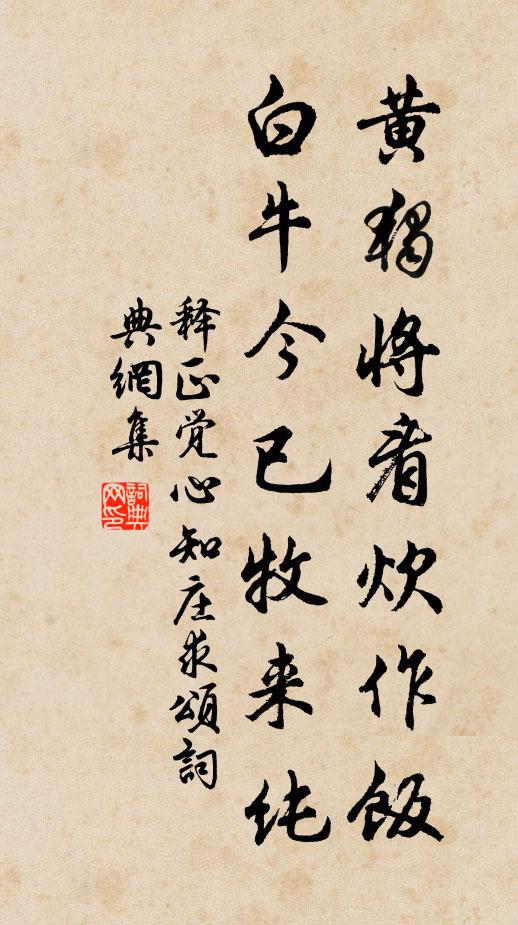 黄獨将看炊作飯
白牛今已牧来纯
释正觉心知庄求頌詞
典網集
詞典
网印